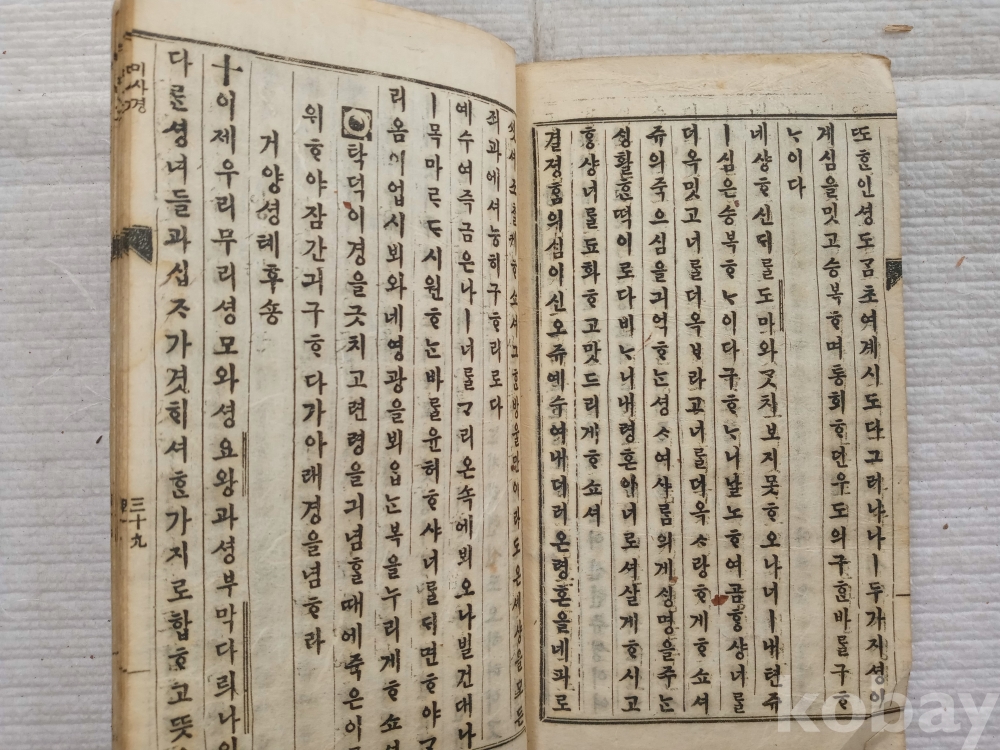 또ᄒᆞᆫ인셩도ᄀᆞᆷ초여계시도다그러나나ㅣ두가지셩이
게심을밋고승복ᄒᆞ며통회ᄒᆞ던우도의구ᄒᆞᆫ바ᄅᆞᆯ구ᄒᆞ
ᄂᆞ이다
네샹ᄒᆞ신ᄃᆡᄅᆞᆯ도마와ᄀᆞᆺ치보지못ᄒᆞ오나너ㅣ내텬쥬
ㅣ심은승복ᄒᆞᄂᆞ이다구ᄒᆞᄂᆞ니날노ᄒᆞ여곰ᄒᆞᆼ샹너ᄅᆞᆯ
더옥밋고너ᄅᆞᆯ더옥ᄇᆞ라고너ᄅᆞᆯ더옥ᄉᆞ랑ᄒᆞ게ᄒᆞ쇼셔
쥬의죽으심을긔억ᄒᆞᄂᆞᆫ셩ᄉᆞ여사ᄅᆞᆷ의게ᄉᆡᆼ명을주ᄂᆞᆫ
ᄉᆡᆼ활ᄒᆞᆫ떡이로다비ᄂᆞ니내령혼아너로셔살게ᄒᆞ시고
ᄒᆞᆼ샹너ᄅᆞᆯ됴화ᄒᆞ고맛드리게ᄒᆞ쇼셔
결졍ᄒᆞᆷ의심이신오쥬예수여내더러온령혼을네피로
ᄒᆞ쇼셔그ᄒᆞᆫ방울만이라도온세샹을모든
죄과에셔능히구ᄒᆞ리로다
예수여즉금은나ㅣ너ᄅᆞᆯᄀᆞ리온속에뵈오나빌건대나
ㅣ목마르ᄃᆞ시원ᄒᆞᄂᆞᆫ바ᄅᆞᆯ윤허ᄒᆞ샤너ᄅᆞᆯᄃᆡ면ᄒᆞ야ᄀᆞ
리옴이업시뵈와네영광을뵈옵ᄂᆞᆫ복을누리게ᄒᆞ쇼셔
탁덕이경을긋치고련령을긔념ᄒᆞᆯ때에죽은이
위ᄒᆞ야잠간긔구ᄒᆞ다가아래경을념ᄒᆞ라
거양셩톄후숑
十이제우리무리셩모와셩요왕과셩부막다릐나
다른셩녀들과십ᄌᆞ가겻ᄒᆡ셔ᄒᆞᆫ가지로합ᄒᆞ고뜻
미사경
三十九
kobay